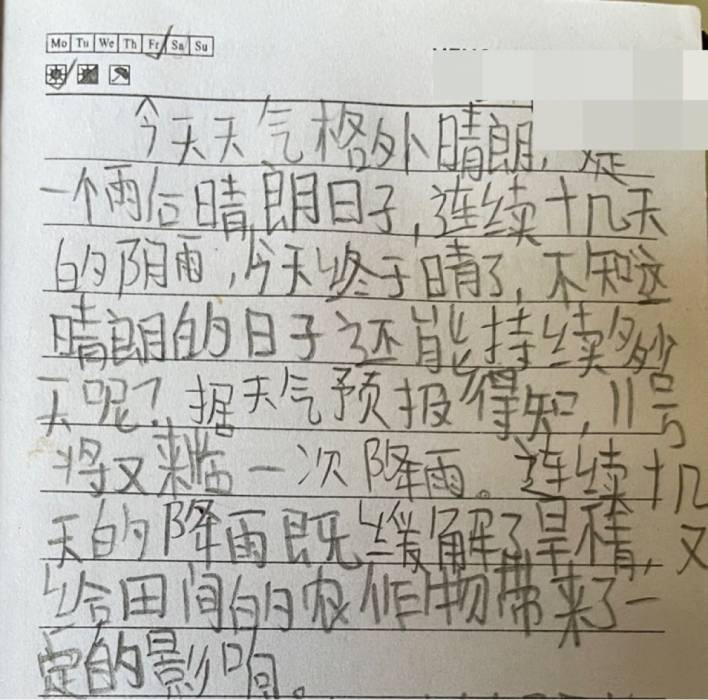 Mo Tu We Th Fr Sa Su
今天天气格外晴朗,是
一个雨后晴朗日子,连续十几天
的阴雨,今天终于晴了,不知这
晴朗的日子还能持续多少
天呢?据天气预报得知,11号
将又来临一次降雨。连续十几
天的降雨既缓解了旱情,又
给田间的农作物带来了一
定的影响。